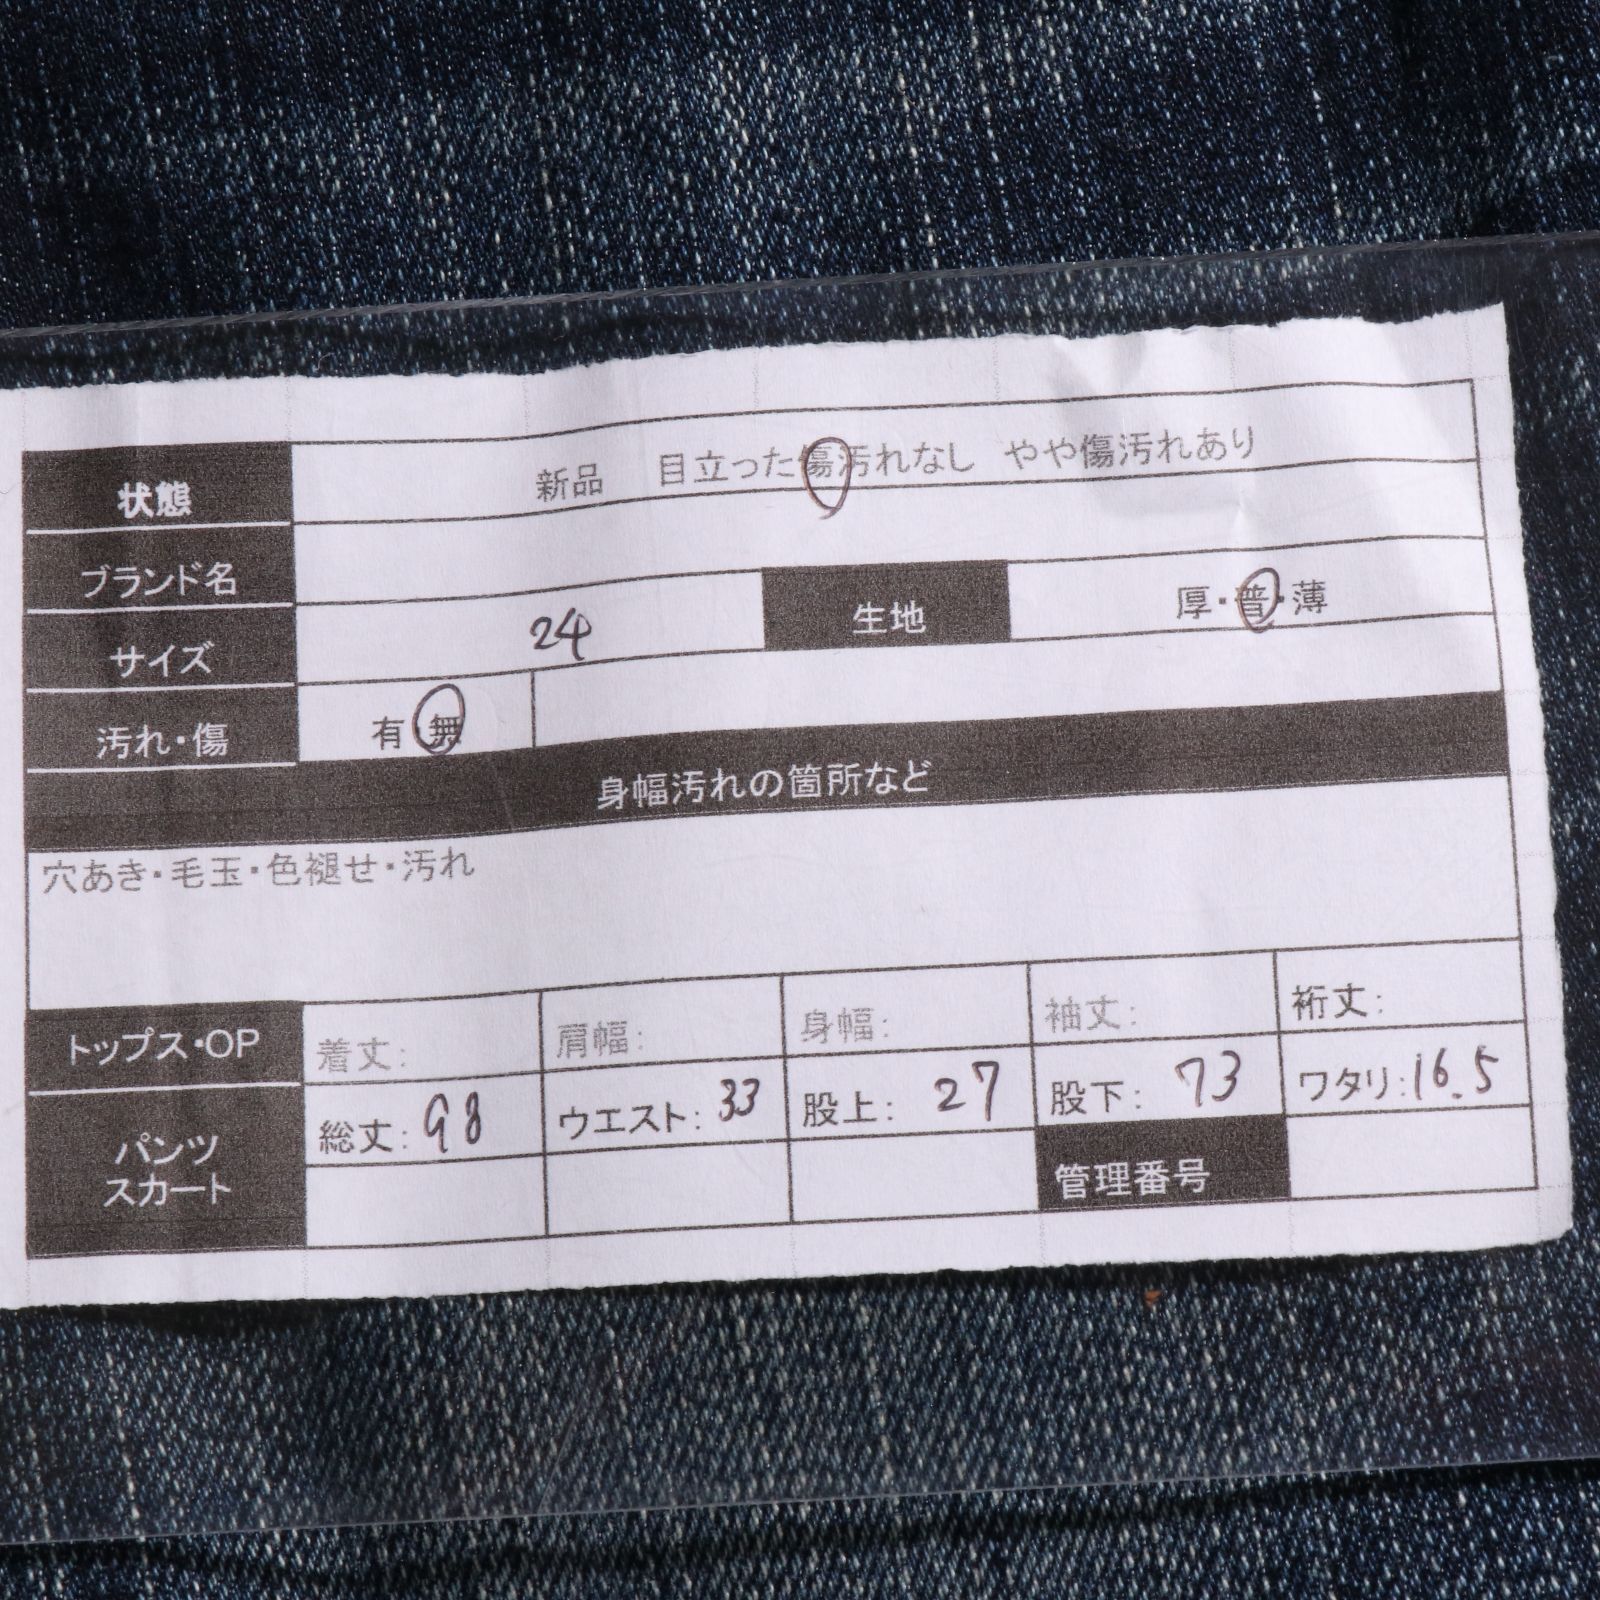 状態 新品 目立った傷汚れなし やや傷汚れあり
ブランド名
サイズ 24 生地 厚・普・薄
汚れ・傷 有 無
身幅汚れの箇所など
穴あき・毛玉・色褪せ・汚れ
トップス・OP 着丈: 肩幅: 身幅: 袖丈: 裄丈:
パンツ スカート 総丈: 98 ウエスト: 33 股上: 27 股下: 73 ワタリ: 16.5
管理番号